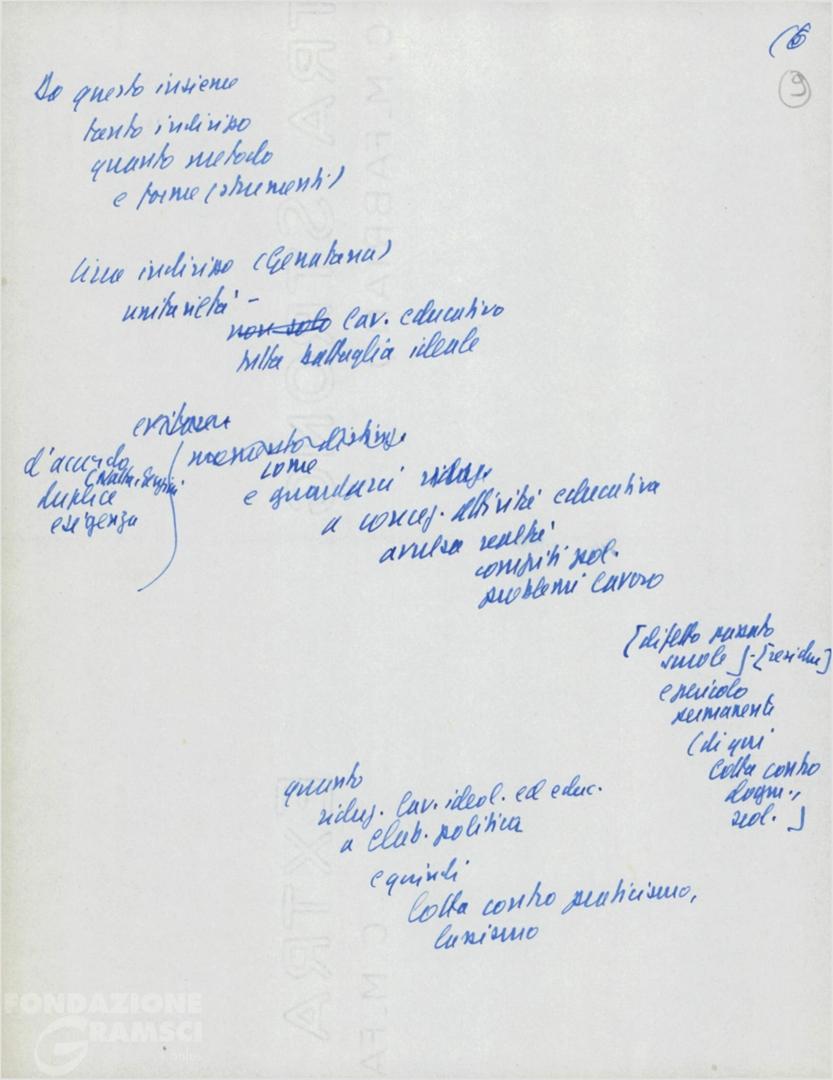 (6
9
Da questo insieme
tanto indirizzo
quanto metodo
e forme (strumenti)
Linea indirizzo (
unitarietà -
non solo lav. educativo
nella battaglia ideale
evitare
d'accordo
(Natta, Sereni
duplice
esigenza
come
e guardarci
a concez. attività educativa
avulsa realtà
compiti pol.
problemi lavoro
[difetto passato
scuole] - [residui]
e pericolo
permanenti
(di qui
lotta contro
dogm.,
quanto
riduz. lav. ideol. ed educ.
a elab. politica
e quindi
lotta contro praticismo,
lassismo
FONDAZIONE
GRAMSCI
onlus
EXTRA STRONG
C.M. FABRIANO
EXTRA
C.M. FA